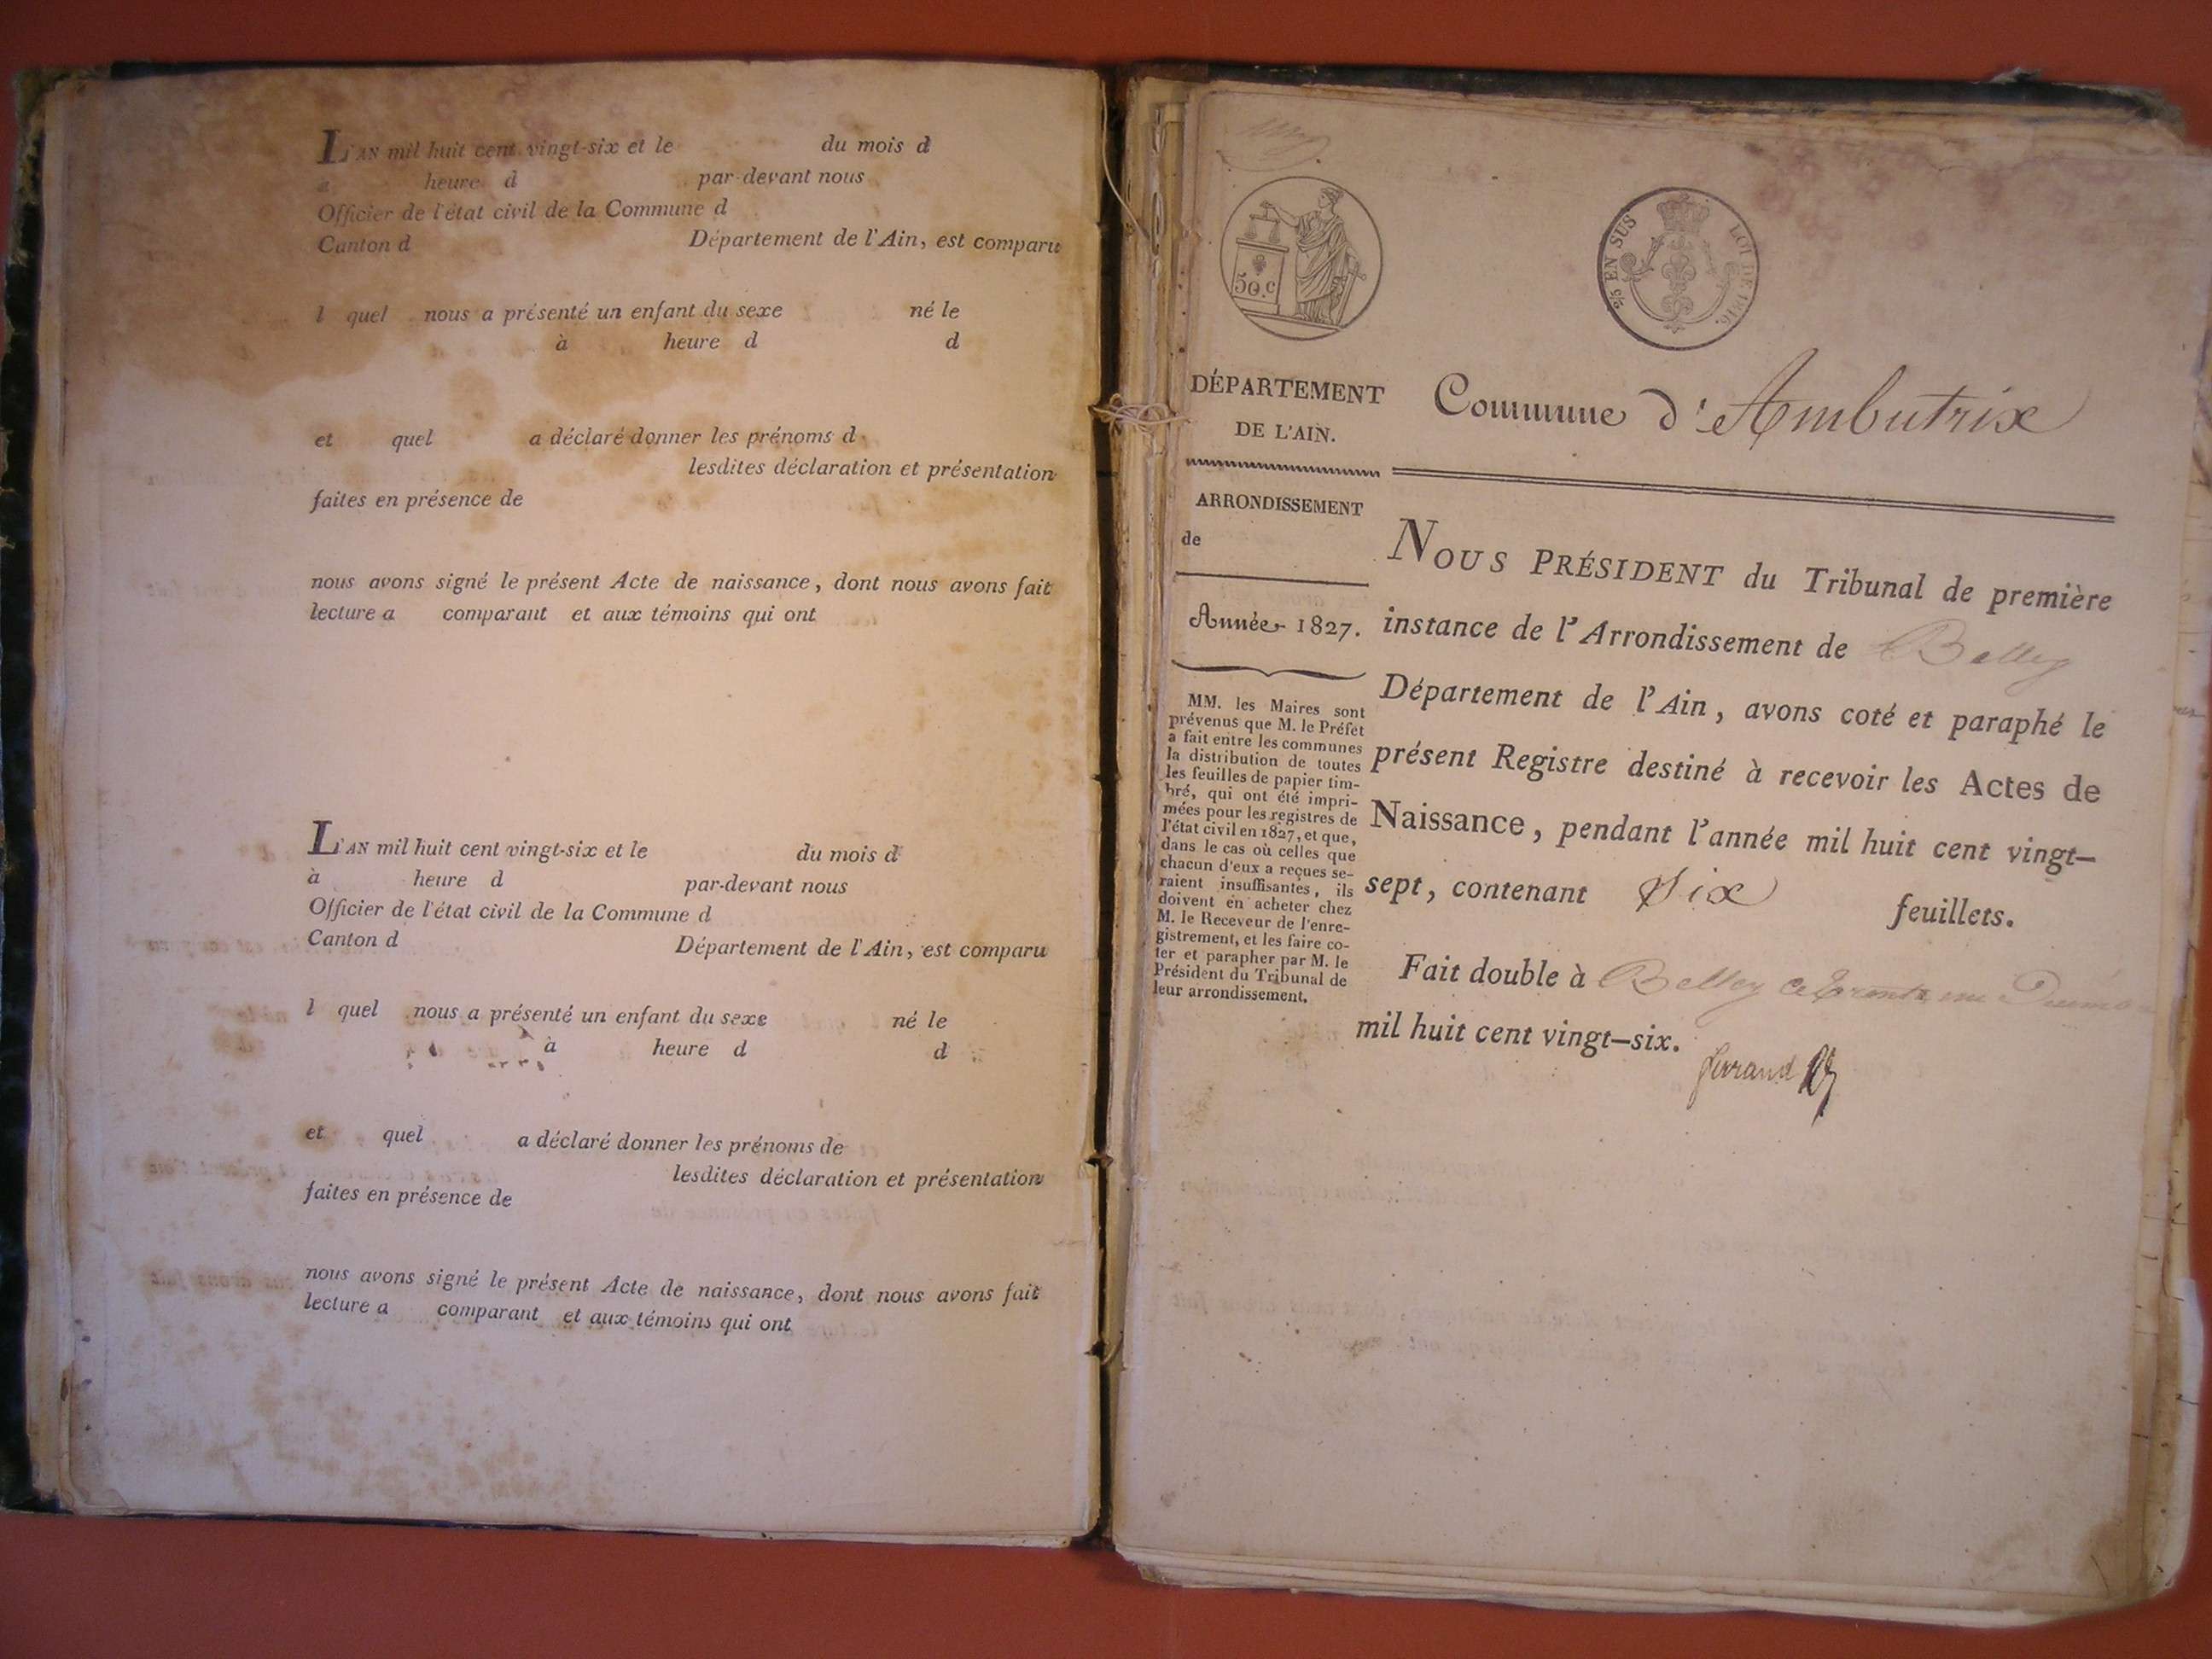 L'AN mil huit cent vingt-six et le du mois d
à heure d par-devant nous
Officier de l'état civil de la Commune d
Canton d Département de l'Ain, est comparu
l quel nous a présenté un enfant du sexe né le
à heure d d
et quel a déclaré donner les prénoms d
lesdites déclaration et présentation
faites en présence de
nous avons signé le présent Acte de naissance, dont nous avons fait
lecture a comparant et aux témoins qui ont
L'AN mil huit cent vingt-six et le du mois d
à heure d par-devant nous
Officier de l'état civil de la Commune d
Canton d Département de l'Ain, est comparu
l quel nous a présenté un enfant du sexe né le
à heure d d
et quel a déclaré donner les prénoms de
lesdites déclaration et présentation
faites en présence de
nous avons signé le présent Acte de naissance, dont nous avons fait
lecture a comparant et aux témoins qui ont
50.c
EN SUS LOI DE 1816.
DÉPARTEMENT
DE L'AIN.
Commune d'Ambutrix
ARRONDISSEMENT
de
Année 1827.
MM. les Maires sont
prévenus que M. le Préfet
a fait entre les communes
la distribution de toutes
les feuilles de papier tim-
bré, qui ont été impri-
mées pour les registres de
l'état civil en 1827, et que,
dans le cas où celles que
chacun d'eux a reçues se-
raient insuffisantes, ils
doivent en acheter chez
M. le Receveur de l'enre-
gistrement, et les faire co-
ter et parapher par M. le
Président du Tribunal de
leur arrondissement.
NOUS PRÉSIDENT du Tribunal de première
instance de l'Arrondissement de Belley
Département de l'Ain, avons coté et paraphé le
présent Registre destiné à recevoir les Actes de
Naissance, pendant l'année mil huit cent vingt-
sept, contenant Six feuillets.
Fait double à Belley ce trente
mil huit cent vingt-six.
ferrand